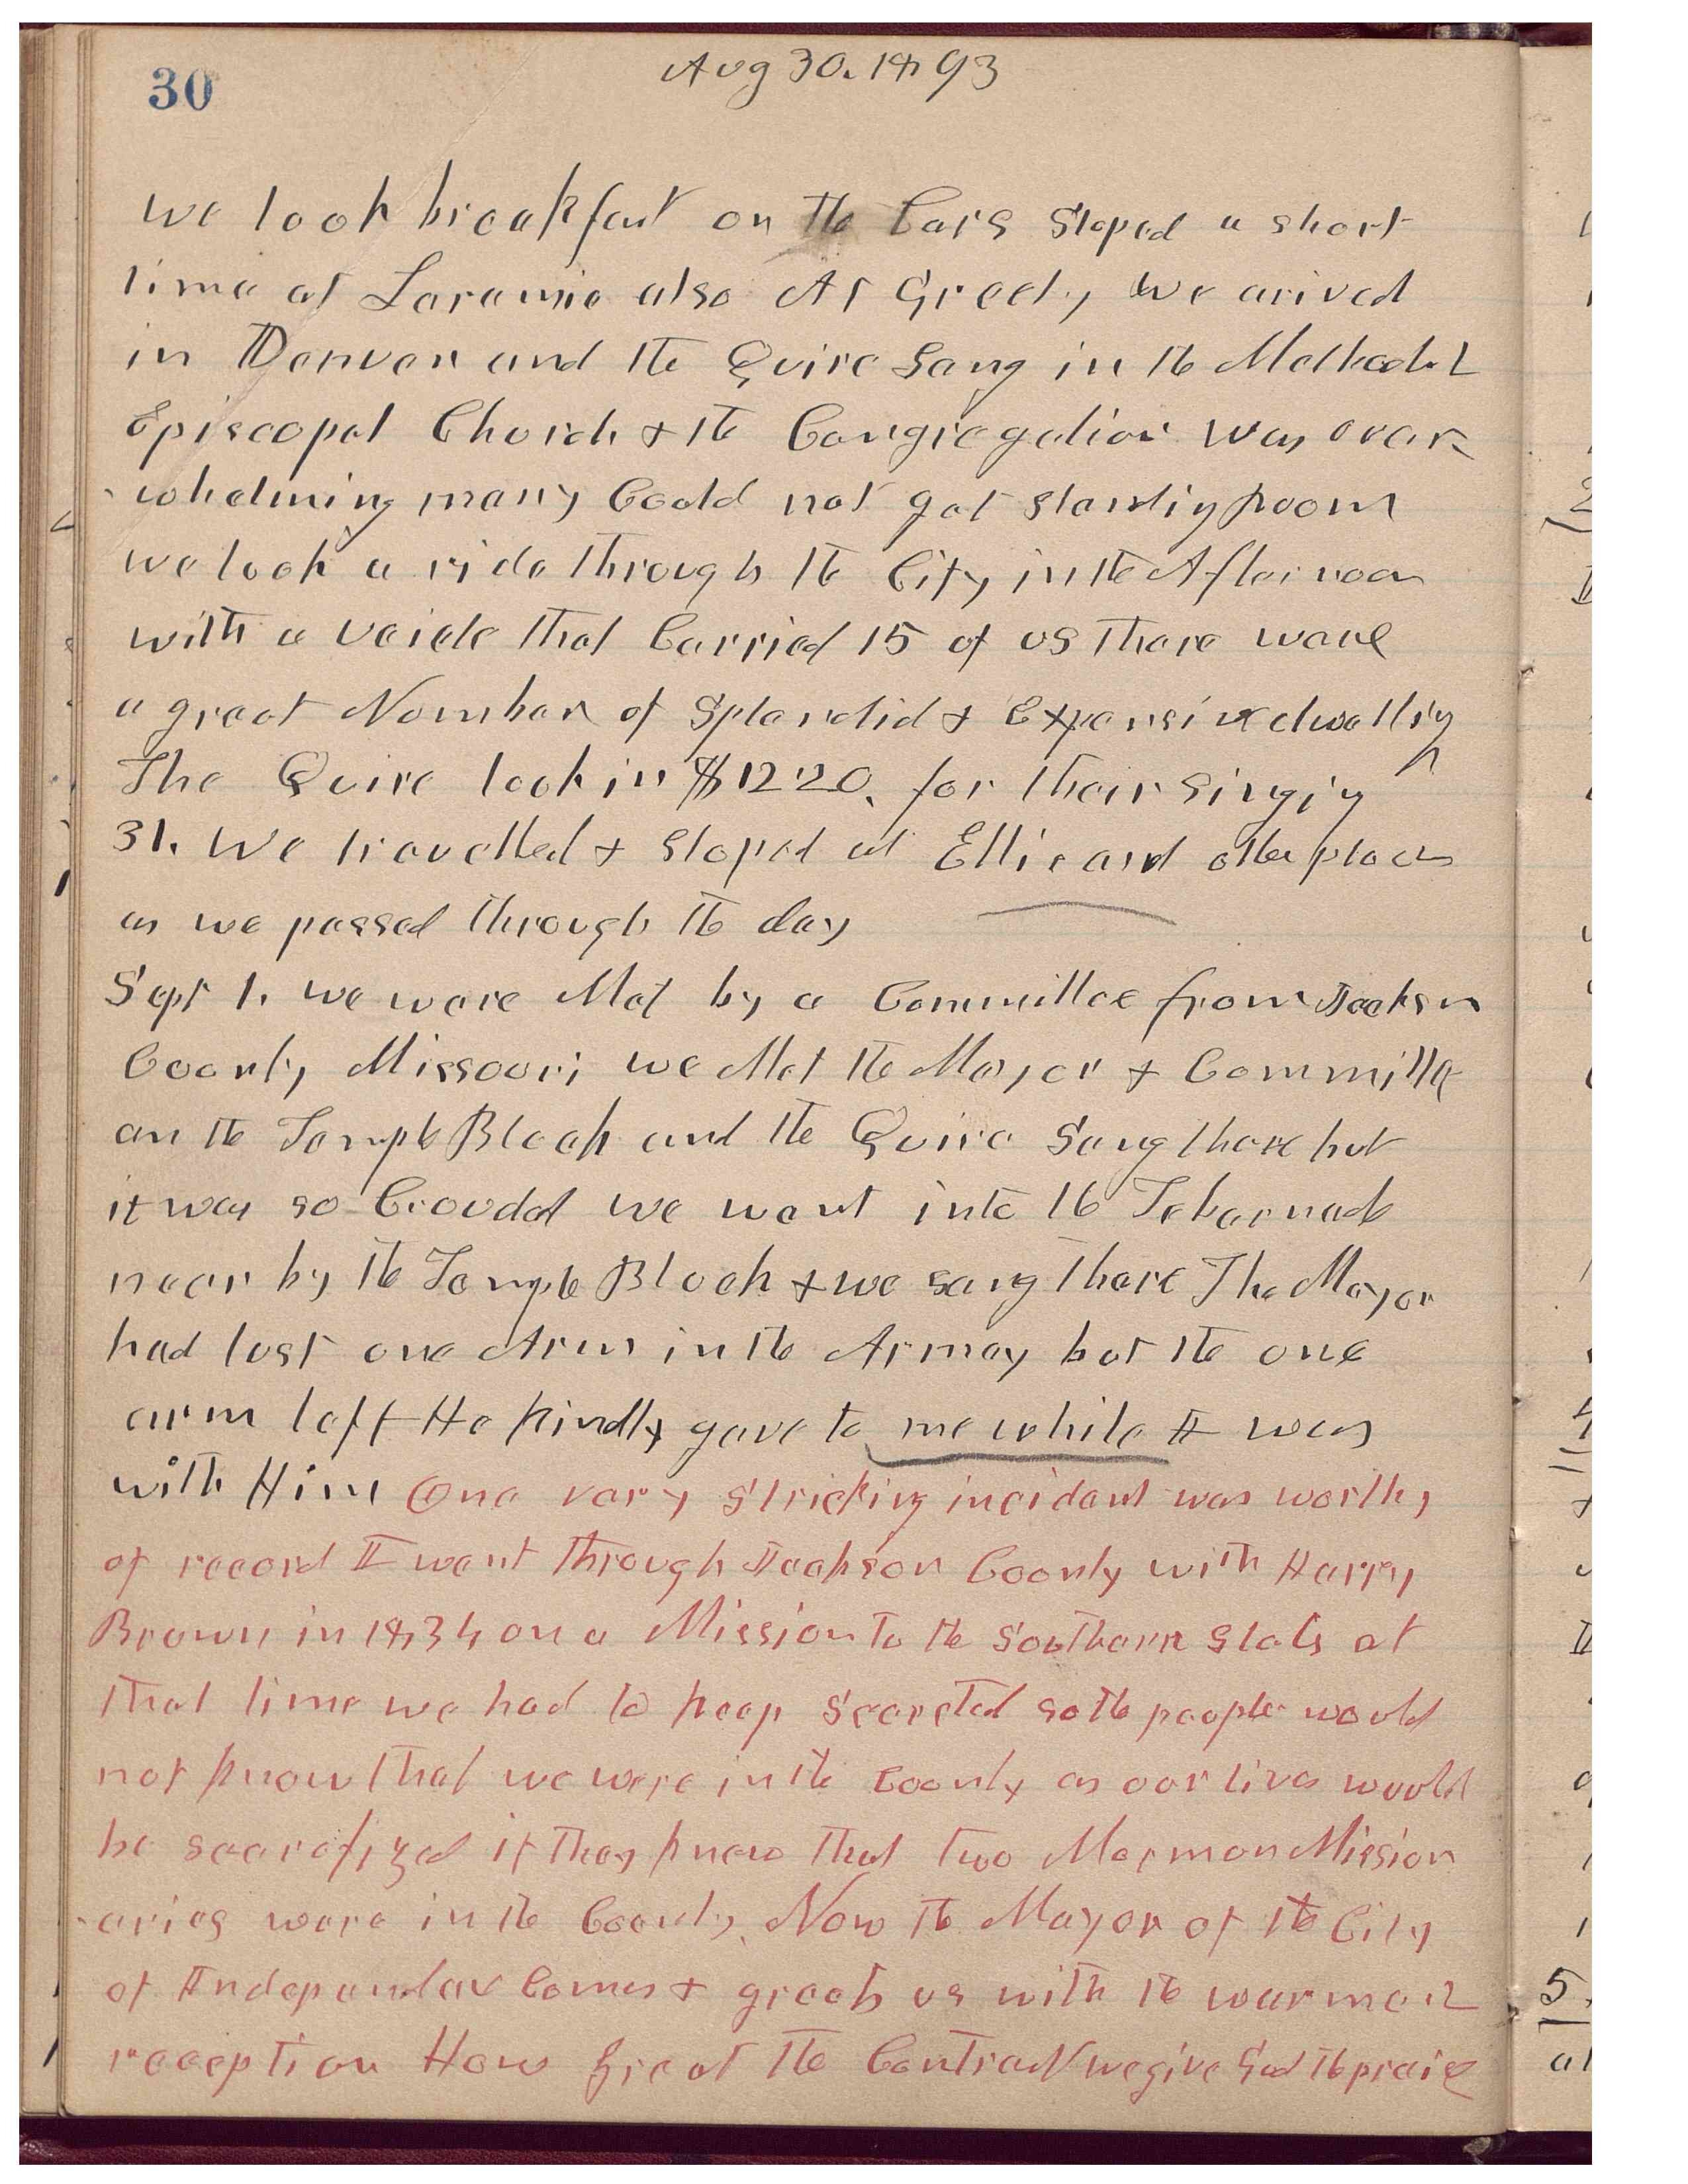 30
Aug 30. 1893
we took breakfast on the Cars Stoped a short
time at Laramie also At Greely we arived
in Denver and the Quire Sang in the Methodist
Episcopal Church & the Congregation was over
-whelming many Could not get standing room
we took a ride through the City in the Afternoon
with a veicle that Carried 15 of us There ware
a great Number of Splendid & Expensive dwelling
The Quire took in $1220. for their singing
31. We travelled & stoped at Ellis and other places
as we passed through the day
Sept 1. we were Met by a Committee from Jackson
County Missouri we Met the Mayor & Committe
on the Temple Block and the Quire Sang there but
it was so Crouded we went into the Tabernacle
near by the Temple Block & we sang there The Mayor
had lost one Arm in the Armey but the one
arm left He kindly gave to me while I was
with Him One very Stricking incident was worthy
of record I went through Jackson County with Harry
Brown in 1834 on a Mission to the Southern States at
that time we had to keep Secreted so the people would
not know that we were in the County as our lives would
be sacrafized if they knew that two Mormon Mission
-aries were in the County. Now the Mayor of the City
of Independance Comes & greets us with the warmest
reception How great the Contrast we give God the praise